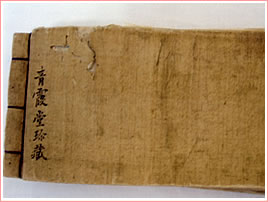 青霞堂珎藏